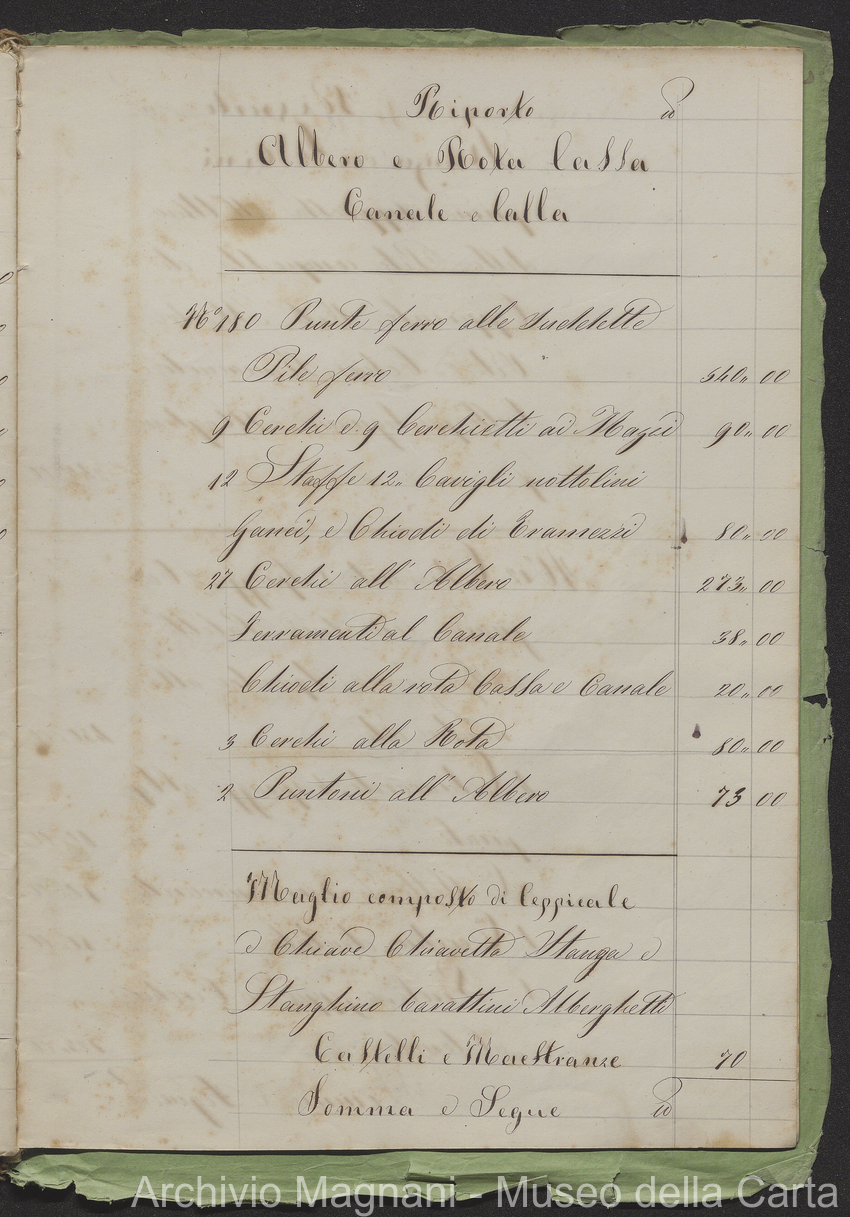 Riporto
Albero e Rota Cassa
Canale e Calla
N.º 180 Punte ferro alle suddette
Pile ferro 540,, 00
9 Cerchi e 9 Cerchietti ai Mazzi 90,, 00
12 Staffe 12,, Cavigli nottolini
Ganci, e Chiodi di Tramezzi 80,, 00
27 Cerchi all' Albero 273,, 00
Ferramenti al Canale 38,, 00
Chiodi alla rota Cassa e Canale 20,, 00
3 Cerchi alla Rota 80,, 00
2 Puntoni all' Albero 73 00
Maglio composto di Ceppicale
e Chiave Chiavetta Stanga e
Stanghino Carattini Alberghetti
Castelli e Maestranze 70
Somma e Segue
Archivio Magnani - Museo della Carta